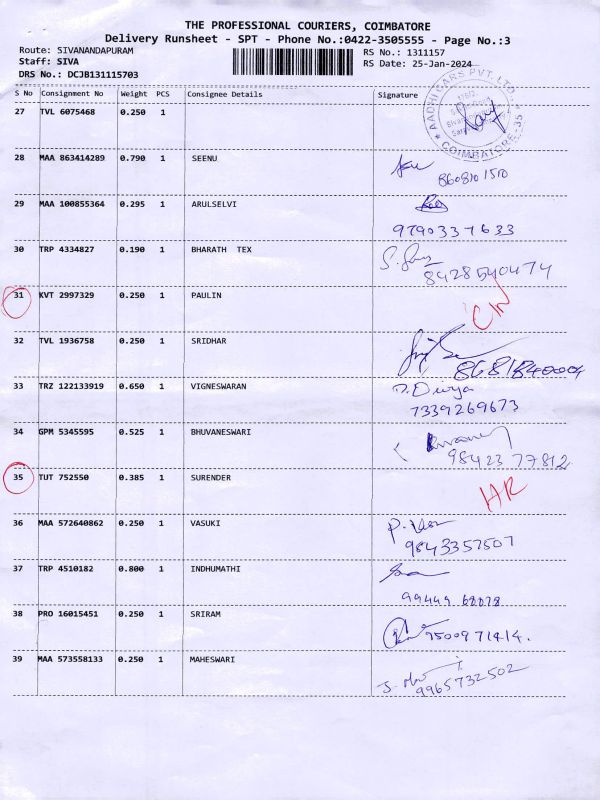 THE PROFESSIONAL COURIERS, COIMBATORE
Delivery Runsheet - SPT - Phone No.:0422-3505555 - Page No.:3
Route: SIVANANDAPURAM
Staff: SIVA
DRS No.: DCJB131115703
RS No.: 1311157
RS Date: 25-Jan-2024
S No Consignment No Weight PCS Consignee Details Signature
27 TVL 6075468 0.250 1
AADHI CARS PVT. LTD.
COIMBATORE-35
28 MAA 863414289 0.790 1 SEENU
29 MAA 100855364 0.295 1 ARULSELVI
9790337633
30 TRP 4334827 0.190 1 BHARATH TEX
8428540474
31 KVT 2997329 0.250 1 PAULIN
32 TVL 1936758 0.250 1 SRIDHAR
33 TRZ 122133919 0.650 1 VIGNESWARAN
D. Divya
7339269673
34 GPM 5345595 0.525 1 BHUVANESWARI
98423 77812
35 TUT 752550 0.385 1 SURENDER
HR
36 MAA 572640862 0.250 1 VASUKI
9843357507
37 TRP 4510182 0.800 1 INDHUMATHI
38 PRO 16015451 0.250 1 SRIRAM
39 MAA 573558133 0.250 1 MAHESWARI
9965732502